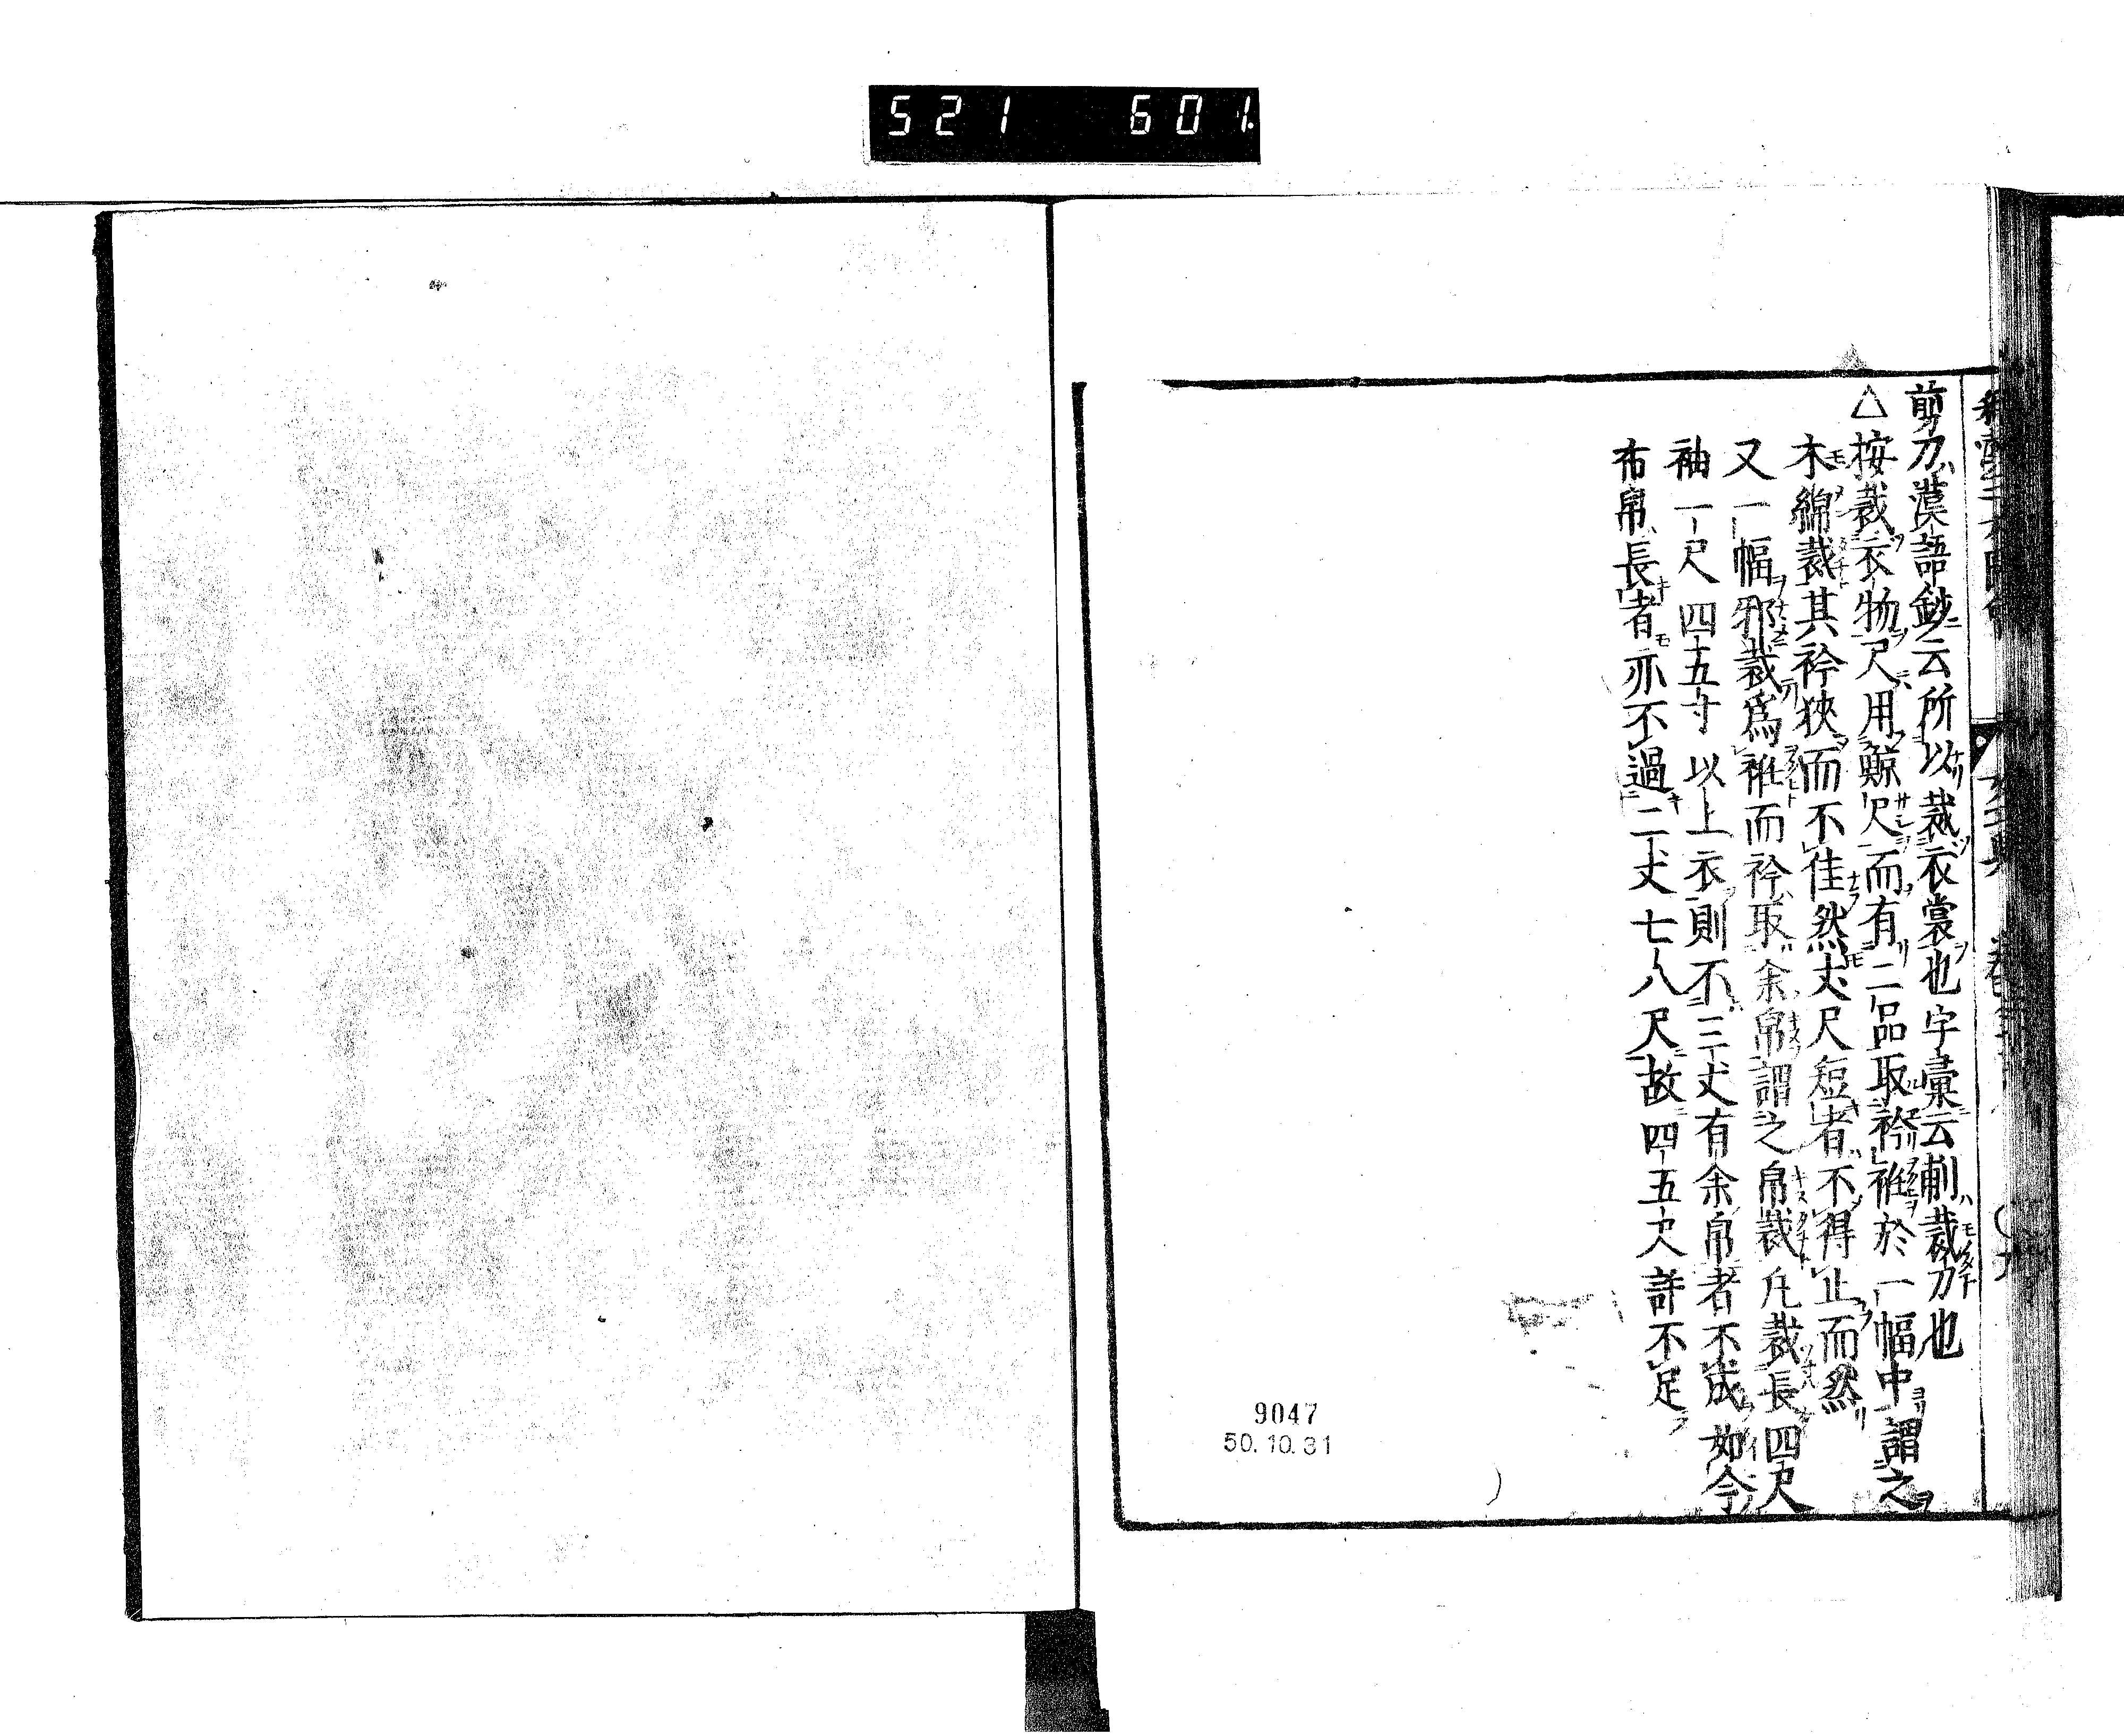 521 601.
剪刀漢語鈔云所以裁衣裳也字彙云剬裁刀也
△按裁衣物尺用鯨尺而有二品取衿袵於一幅中謂之
木綿裁其衿狹而不佳然丈尺短者不得止而然
又一幅邪裁爲袵而衿取余帛謂之帛裁凡裁長四尺
袖一尺四五寸以上衣則不三丈有余帛者不成如今
布帛長者亦不過二丈七八尺故四五尺許不足
9047
50.10.31